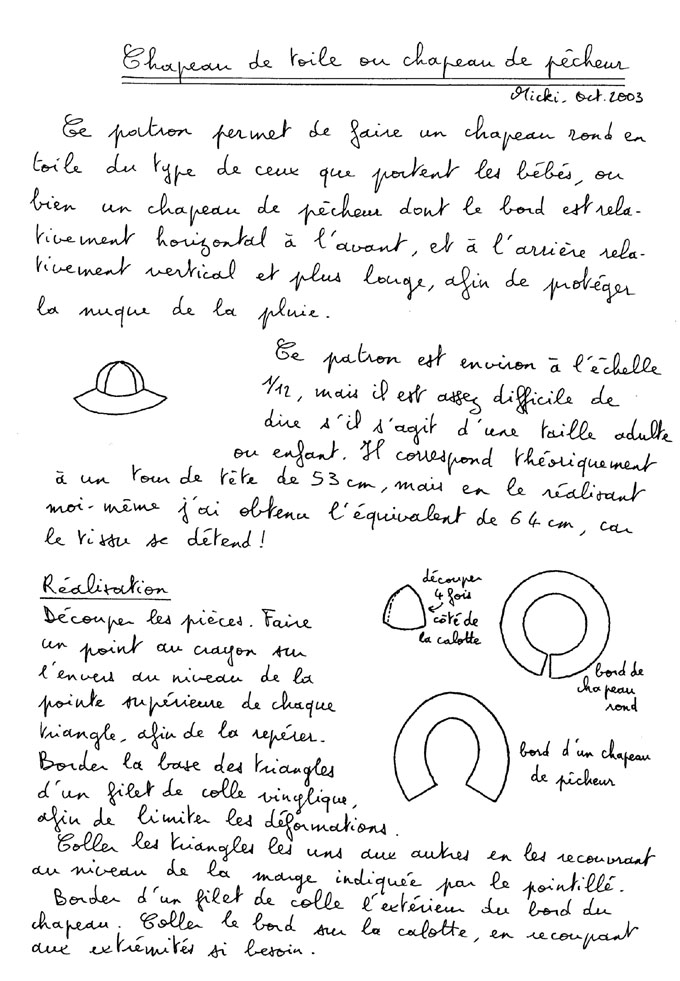 Chapeau de toile ou chapeau de pêcheur
Micki, Oct. 2003
Ce patron permet de faire un chapeau rond en
toile du type de ceux que portent les bébés, ou
bien un chapeau de pêcheur dont le bord est rela-
tivement horizontal à l'avant, et à l'arrière rela-
tivement vertical et plus louge, afin de protéger
la nuque de la pluie.
Ce patron est environ à l'échelle
1/12, mais il est assez difficile de
dire s'il s'agit d'une taille adulte
ou enfant. Il correspond théoriquement
à un tour de tête de 53 cm, mais en le réalisant
moi-même j'ai obtenu l'équivalent de 64 cm, car
le tissu se détend!
Réalisation
Découper les pièces. Faire
un point au crayon sur
l'envers au niveau de la
pointe supérieure de chaque
triangle, afin de la repérer.
Border la base des triangles
d'un filet de colle vinylique,
afin de limiter les déformations.
Coller les triangles les uns aux autres en les recouvrant
au niveau de la marge indiquée par le pointillé.
Border d'un filet de colle l'extérieur du bord du
chapeau. Coller le bord sur la calotte, en recoupant
aux extrémités si besoin.
découper
4 fois
côté de
la calotte
bord de
chapeau
rond
bord d'un chapeau
de pêcheur